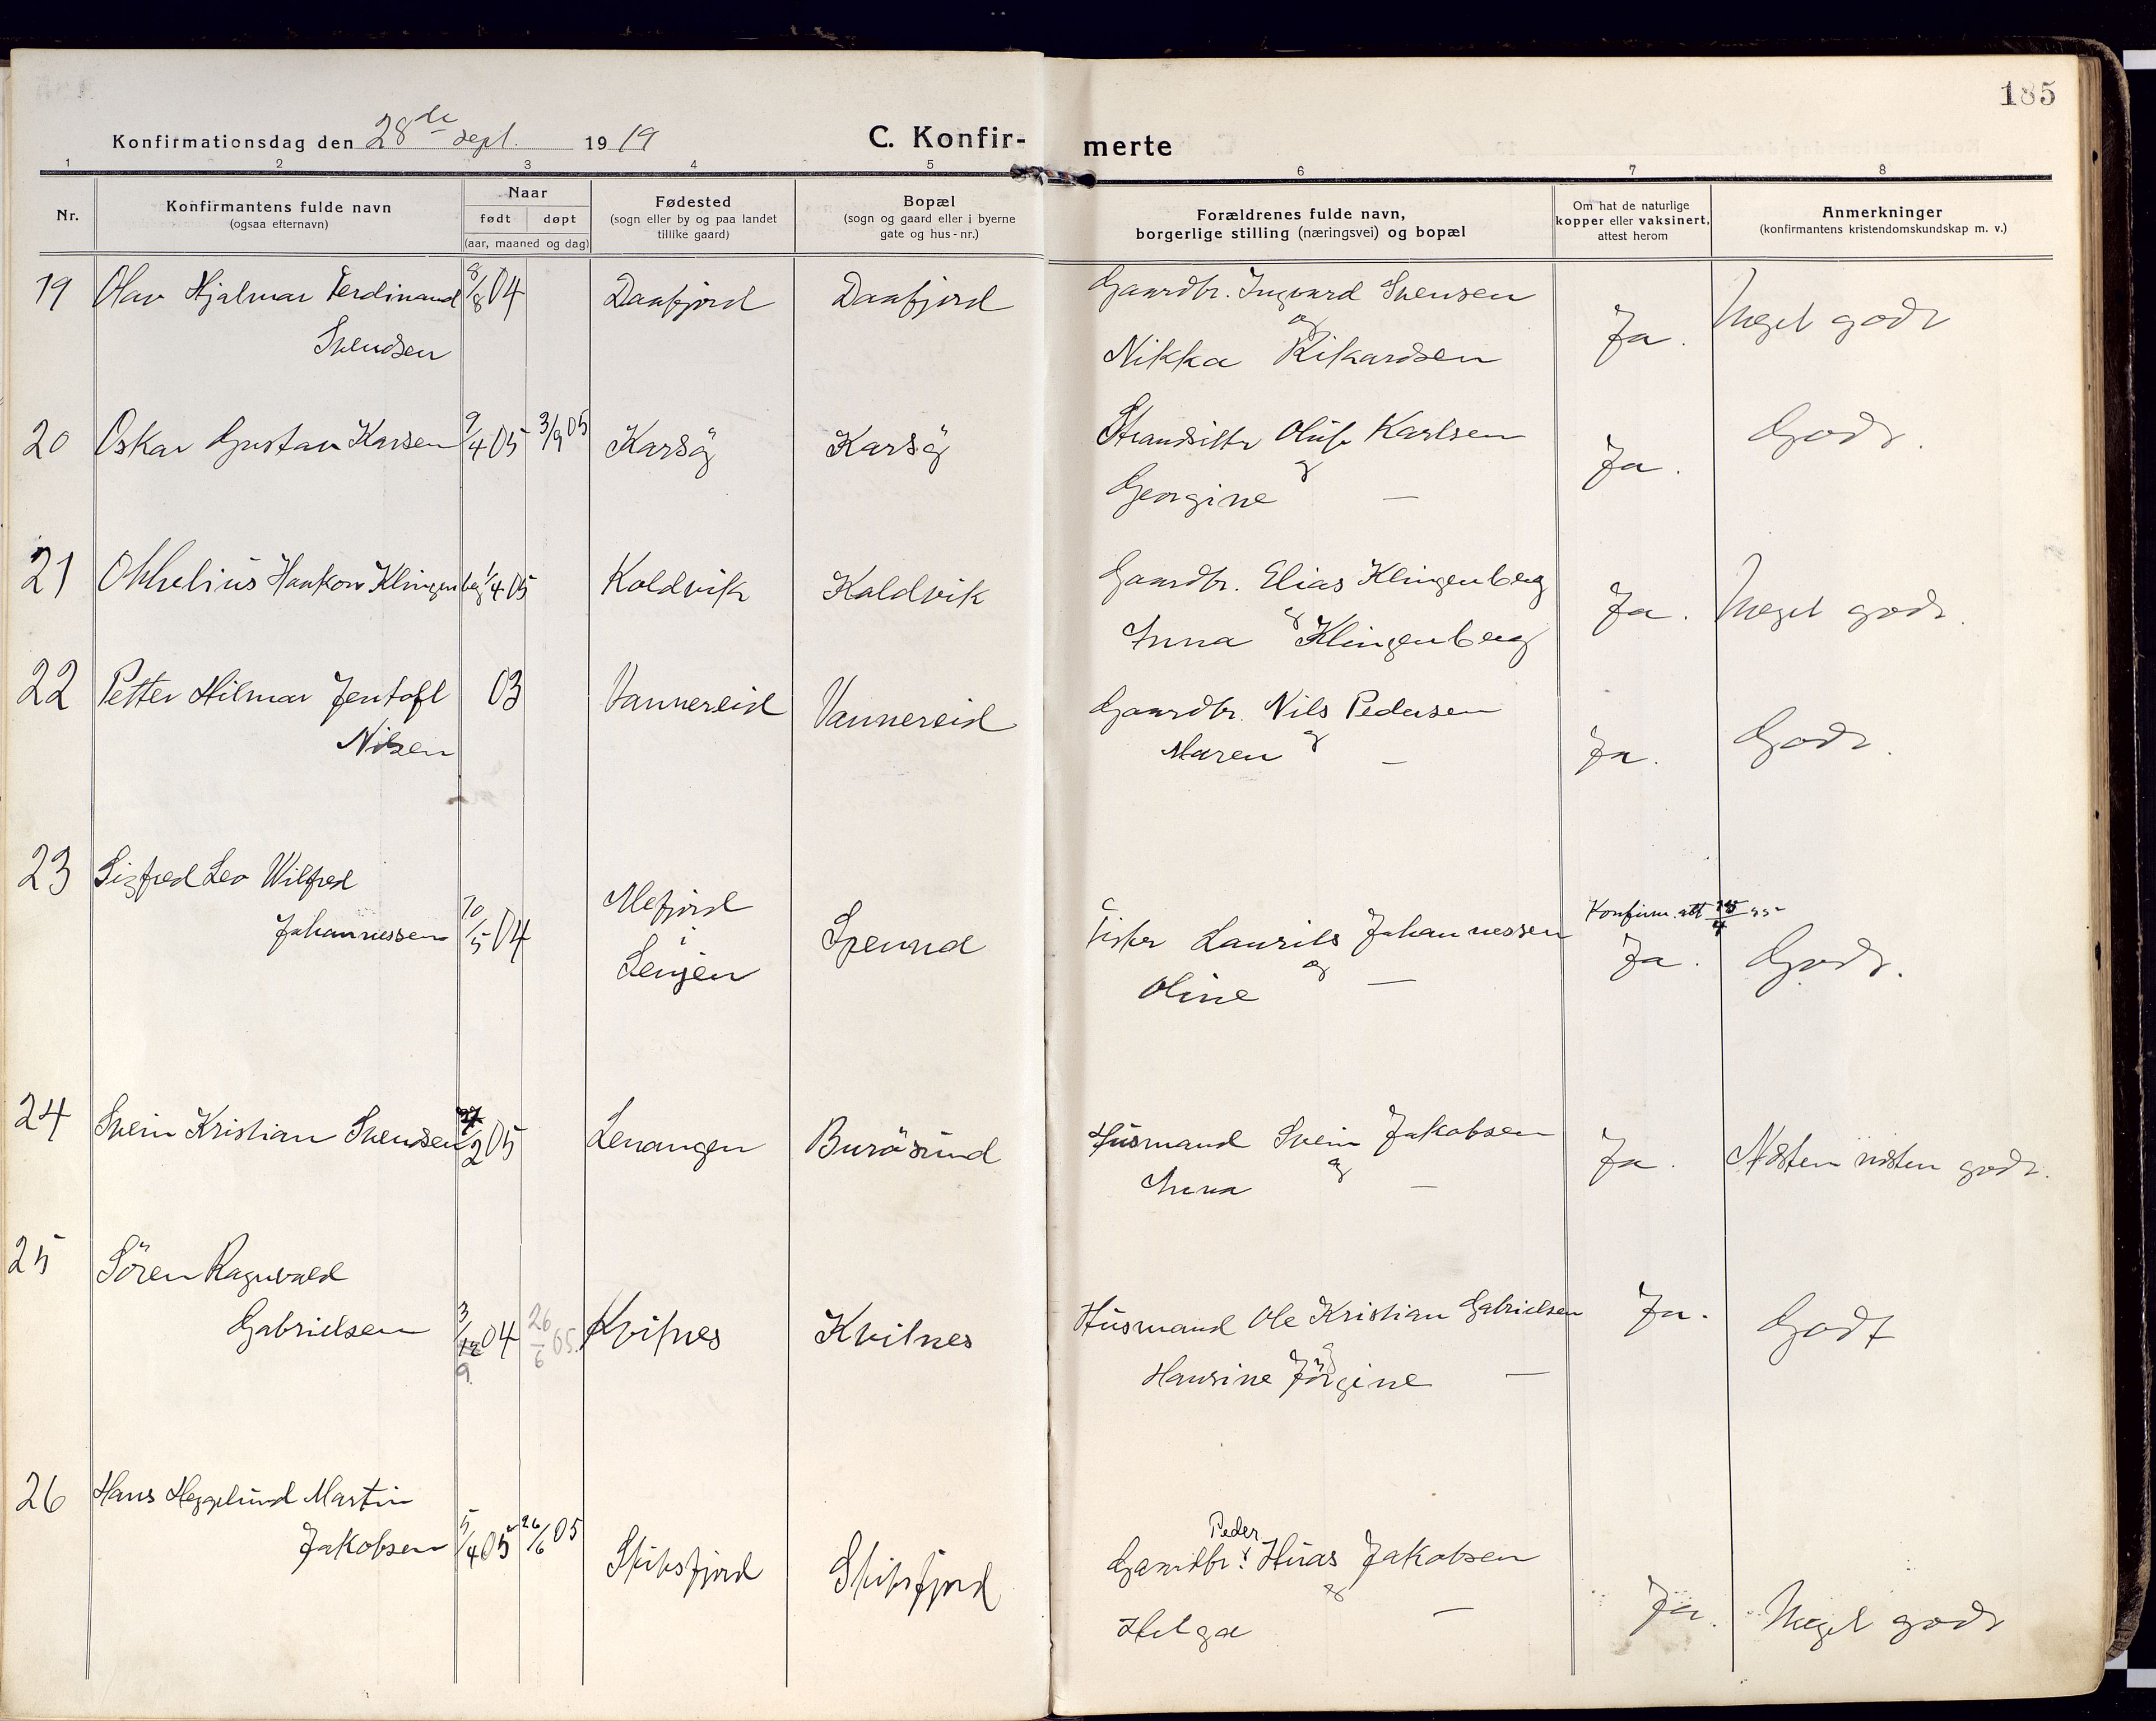 185
Konfirmationsdag den 28de sept. 1919
C. Konfir-
merte
1 2 3 4 5 6 7 8
Nr.
Konfirmantens fulde navn
(ogsaa efternavn)
Naar
født døpt
(aar, maaned og dag)
Fødested
(sogn eller by og paa landet
tillike gaard)
Bopæl
(sogn og gaard eller i byerne
gate og hus-nr.)
Forældrenes fulde navn,
borgerlige stilling (næringsvei) og bopæl
Om hat de naturlige
kopper eller vaksinert,
attest herom
Anmerkninger
(konfirmantens kristendomskundskap m. v.)
19 Olav Hjalmar Ferdinand 8/8 04 Daafjord Daafjord Gaardbr. Ingvard Svensen
Svendsen og
Nikka Rikardsen Ja. Meget godt
20 Oskar Gustav Karsen 9/4 05 3/9 05 Karsö Karsö Strandsitter Oluf Karlsen
og
Georgine — Ja. Godt.
21 Haakon Klingenberg 1/4 05 Koldvik Koldvik Gaardbr. Elias Klingenberg
og
Anna Klingenberg Ja. Meget godt.
22 Petter Hilmar Jentoft 03 Vannereid Vannereid Gaardbr. Nils Pedersen
Nilsen og
Maren — Ja. Godt.
23 Sigfred Leo Wilfred
Johannessen 10/5 04 Mefjord
i
Senjen Spenna Fisker Laurits Johannessen
og
Oline — Konfirm. att 15/4 55
Ja. Godt.
24 Svein Kristian Svendsen /2 05 Lenangen Burösund Husmand Svein Jakobsen
og
Anna — Ja. Næsten næsten godt.
25 Sören Ragnvald
Gabrielsen 3/12 04 26/6 05. Kvitnes Kvitnes Husmand Ole Kristian Gabrielsen
9 og
Hansine Jörgine — Ja. Godt
26 Hans Heggelund Martin
Jakobsen 5/4 05 26/6 05 Skibsfjord Skibsfjord Peder
Gaardbr. x Hias Jakobsen
og
Helga — Ja. Meget godt